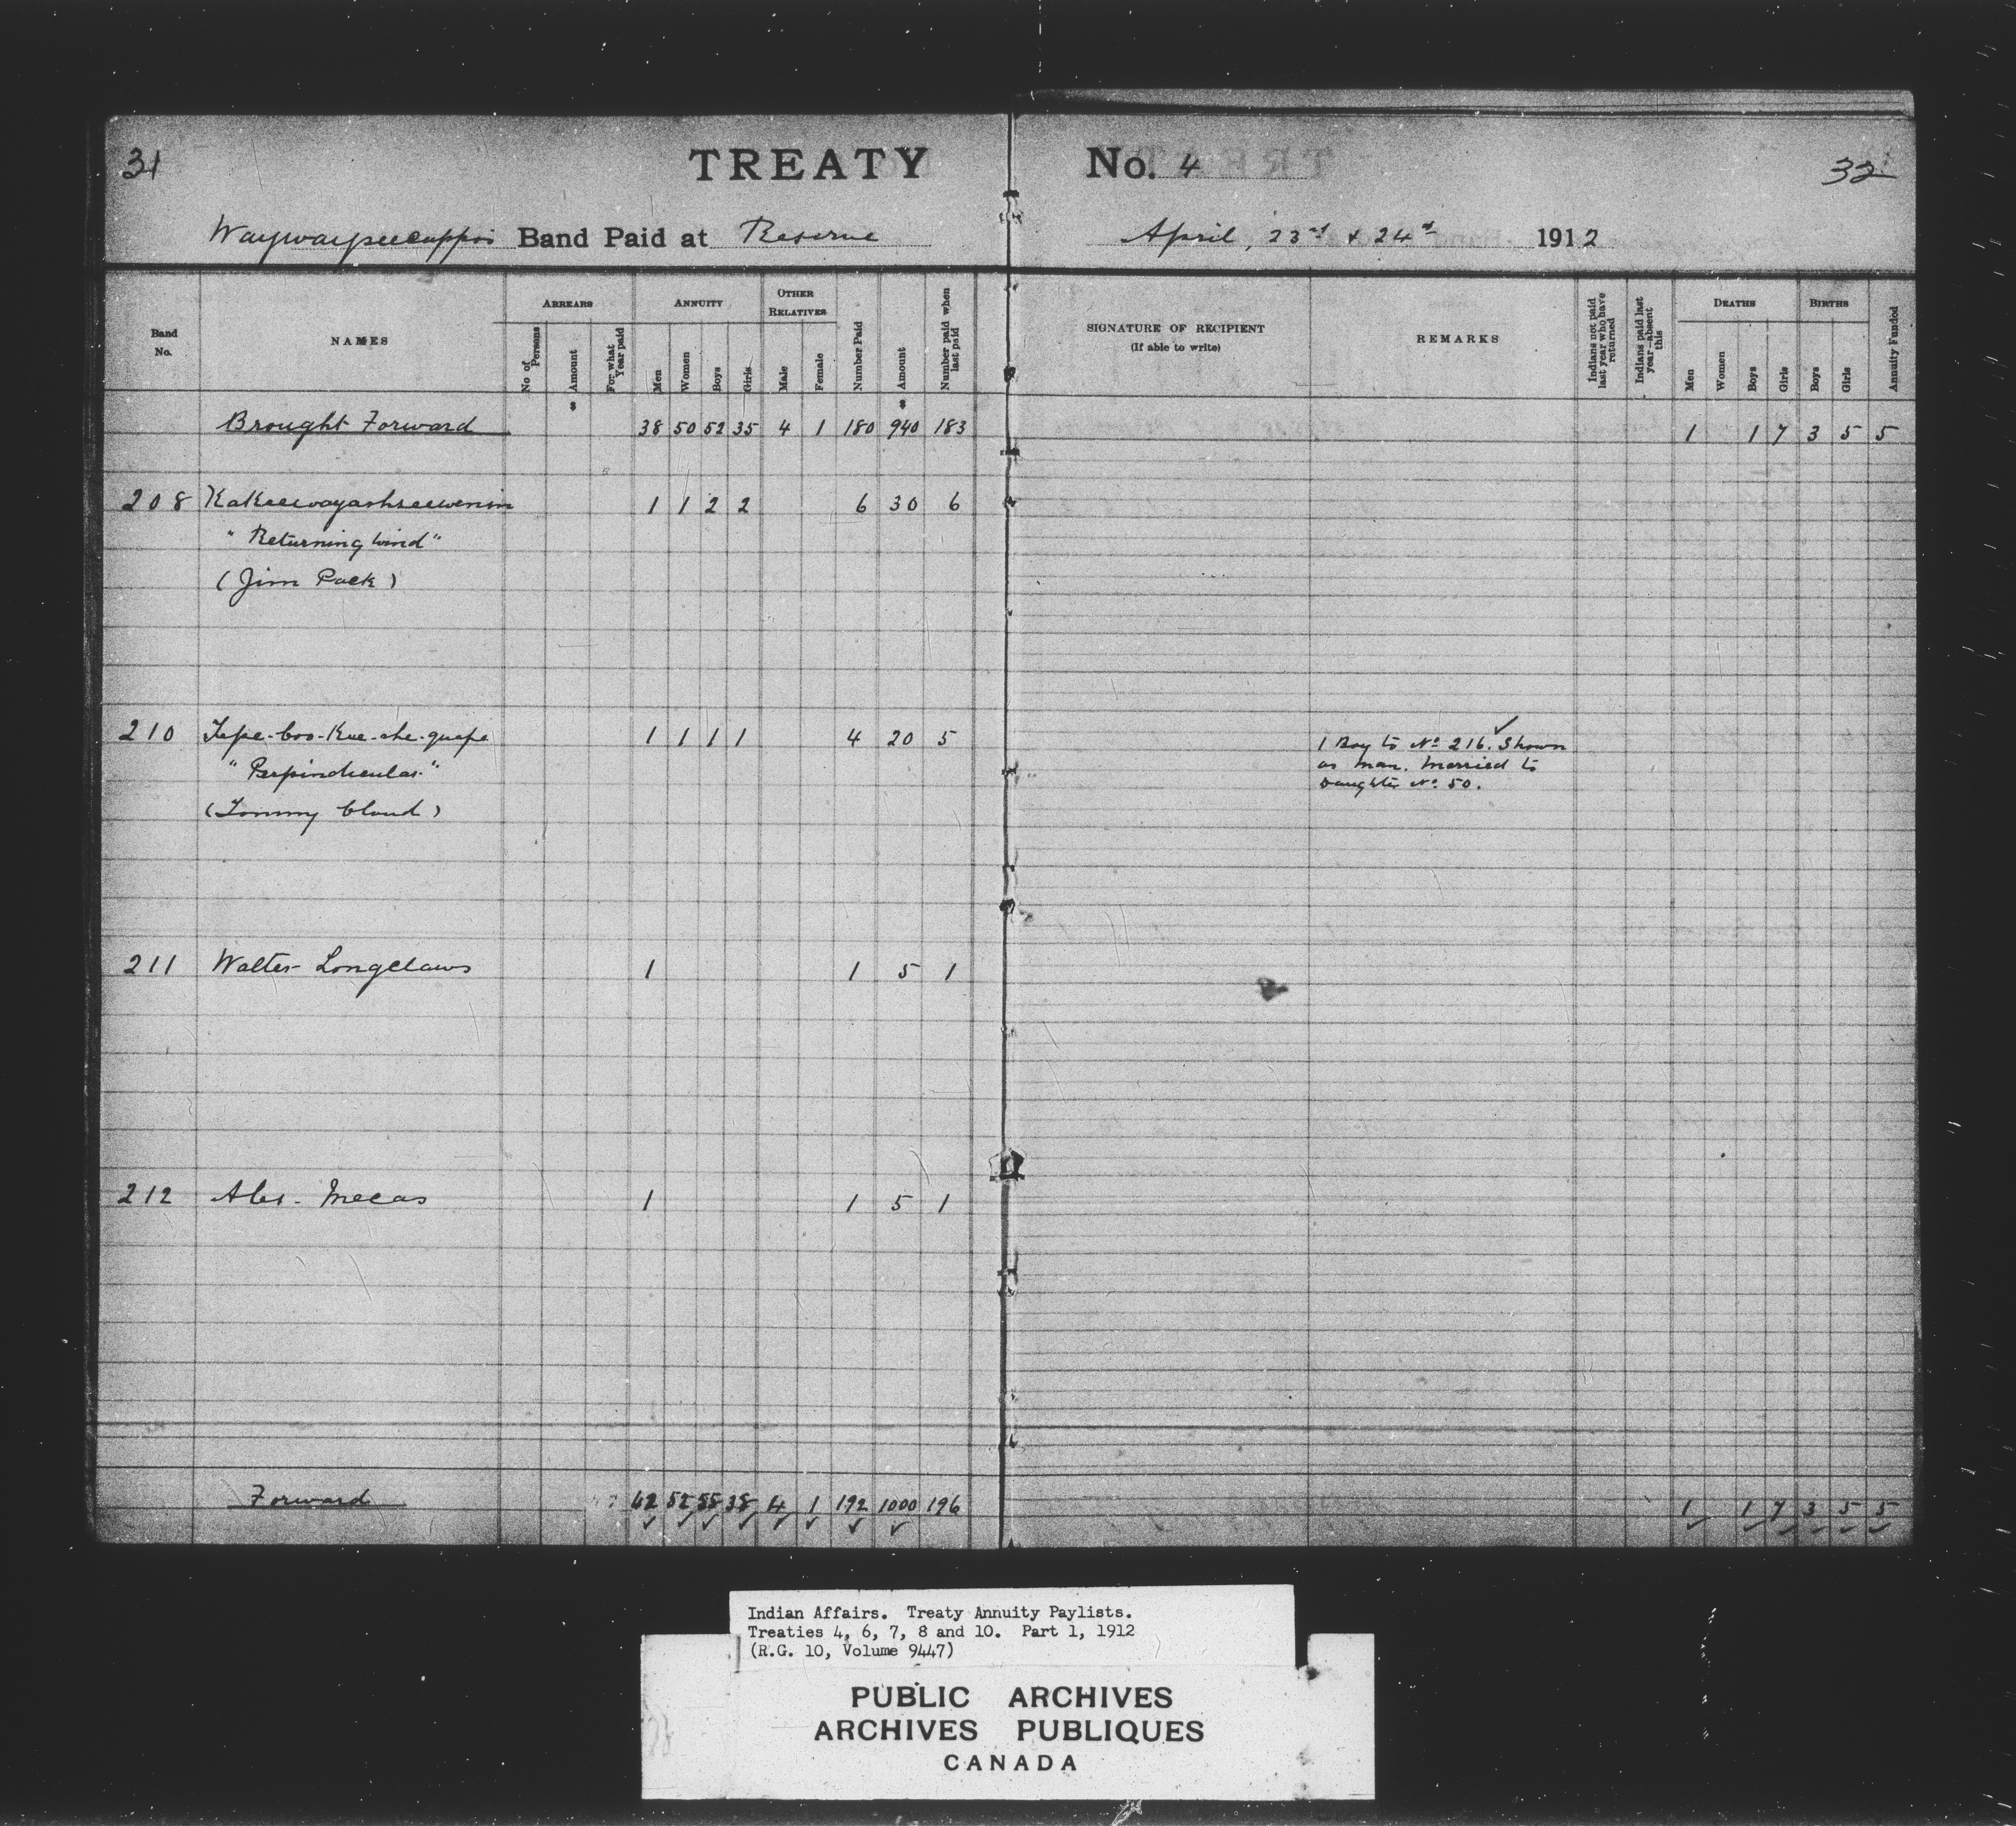 31 TREATY No. 4 32
Waywayseecappo Band Paid at Reserve April, 23rd & 24th 1912
Band No. NAMES ARREARS No of Persons Amount For what Year paid ANNUITY Men Women Boys Girls OTHER RELATIVES Male Female Number Paid Amount Number paid when last paid SIGNATURE OF RECIPIENT (If able to write) REMARKS Indians not paid last year who have returned Indians paid last year absent this DEATHS Men Women Boys Girls BIRTHS Boys Girls Annuity Funded
$ $
Brought Forward 38 50 52 35 4 1 180 940 183 1 1 7 3 5 5
208 1 1 2 2 6 30 6
"Returning Wind"
(Jim Pack)
210 1 1 1 1 4 20 5 1 Boy to No 216. Shown
"Perpindicular" as man. Married to
(Tommy Cloud) Daughter No 50.
211 Walter Longclaws 1 1 5 1
212 Alex. Mecas 1 1 5 1
Forward 42 52 55 38 4 1 192 1000 196 1 1 7 3 5 5
Indian Affairs. Treaty Annuity Paylists.
Treaties 4, 6, 7, 8 and 10. Part 1, 1912
(R.G. 10, Volume 9447)
PUBLIC ARCHIVES
ARCHIVES PUBLIQUES
CANADA